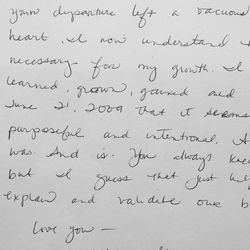 your departure left a vacuous
heart. I now understand
necessary for my growth. I
learned, grown, gained and
June 21, 2009 that it seems
purposeful and intentional.
was. And is. You always knew
but I guess that just
explain and validate our
Love you —